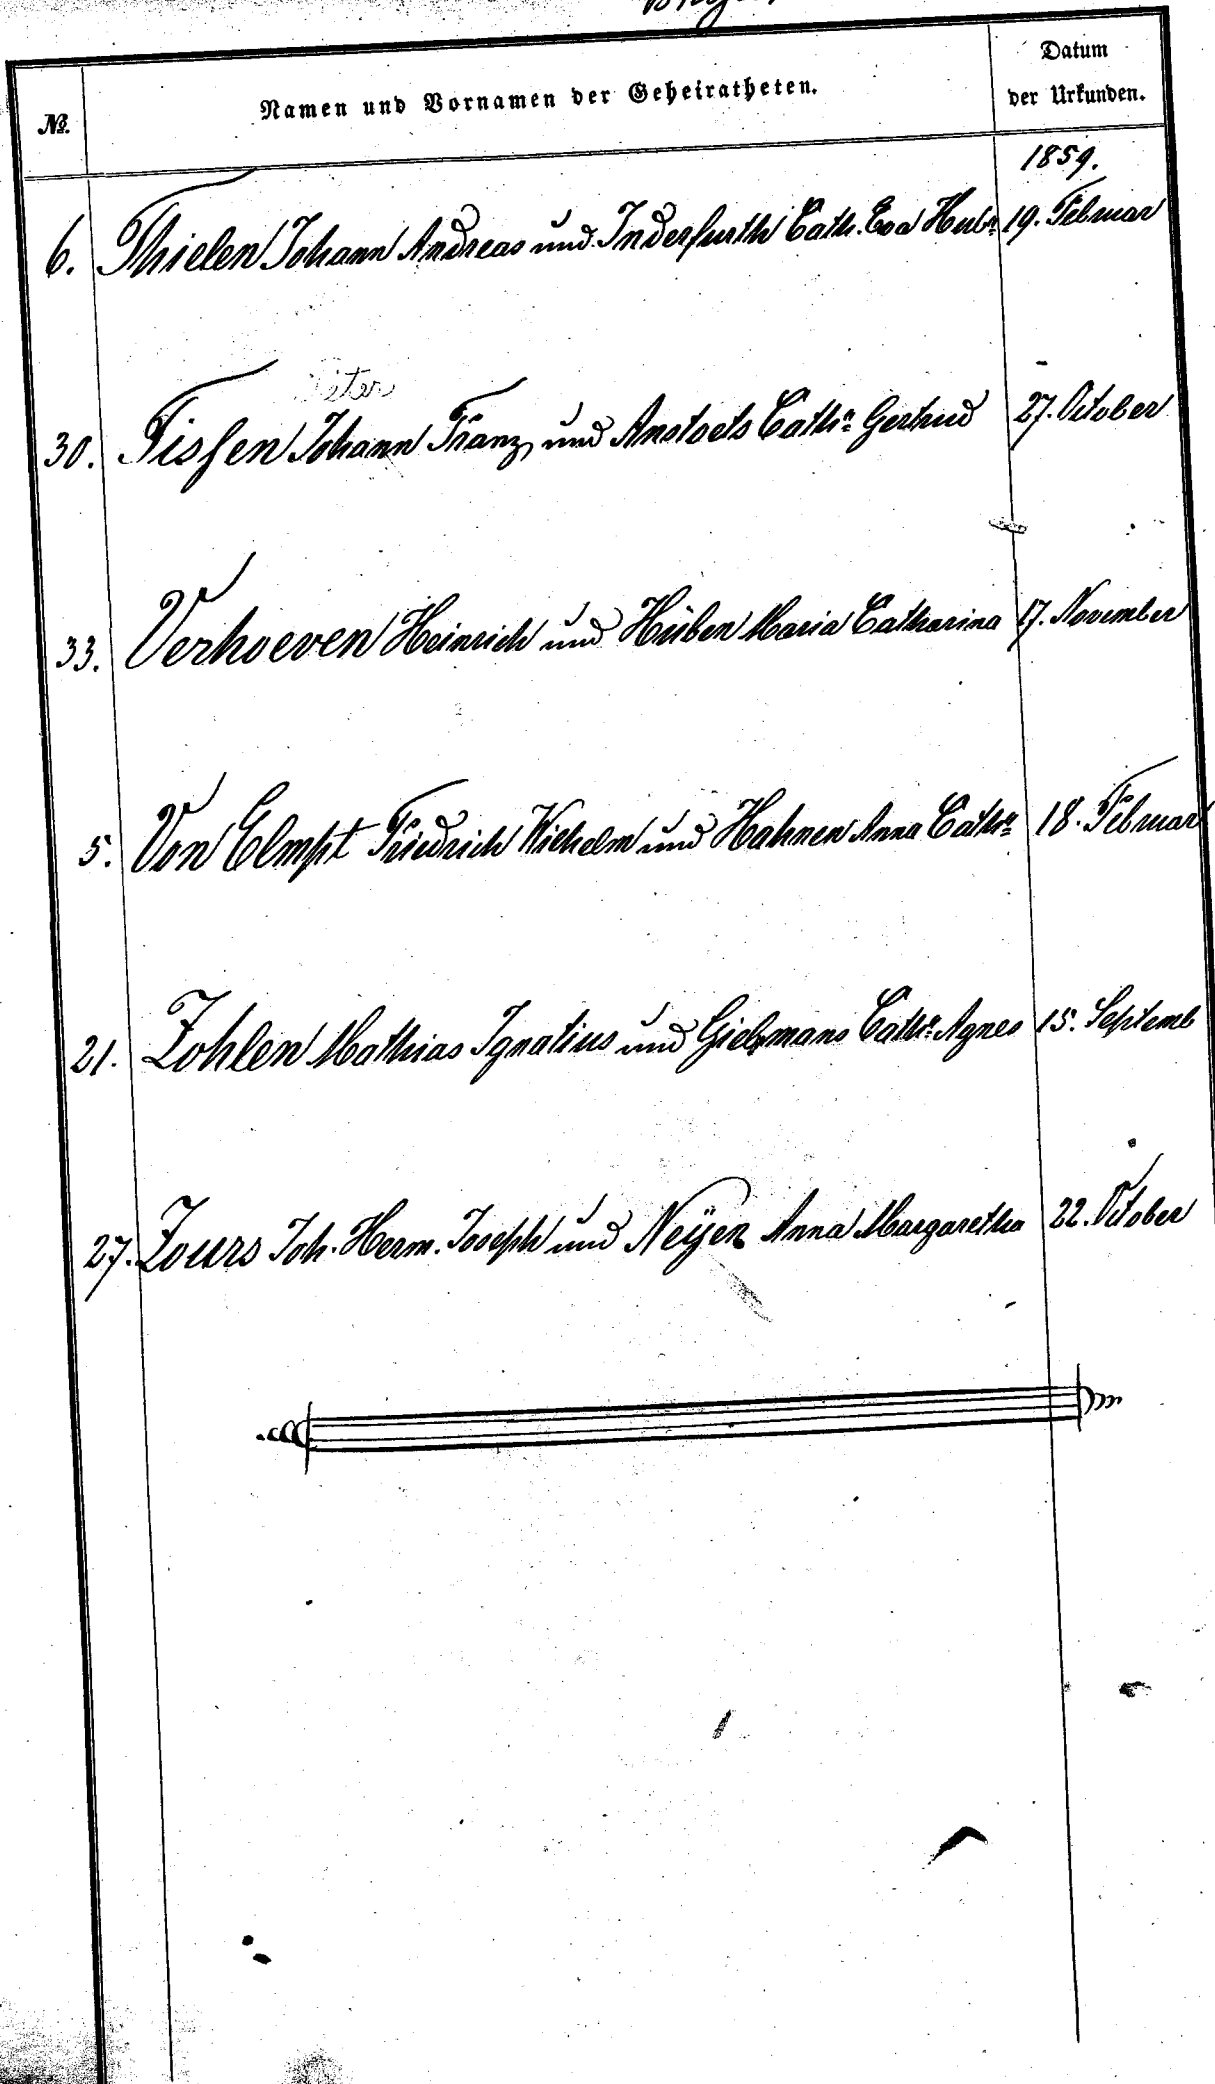 №. Namen und Vornamen der Geheiratheten. Datum der Urkunden.
1859.
6. Thielen Johann Andreas und Inderfurth Cath. Eva Hub: 19. Februar
Peter
30. Tissen Johann Franz und Anstoets Catha Gertrud 27. October
33. Verhoeven Heinrich und Hüben Maria Catharina 17. November
5. Von Elmpt Friedrich Wilhelm und Hahnen Anna Catha 18. Februar
21. Zohlen Mathias Ignatius und Catha Agnes 15. Septemb
27. Zours Joh. Herm. Joseph und Neÿen Anna Margaretha 22. October